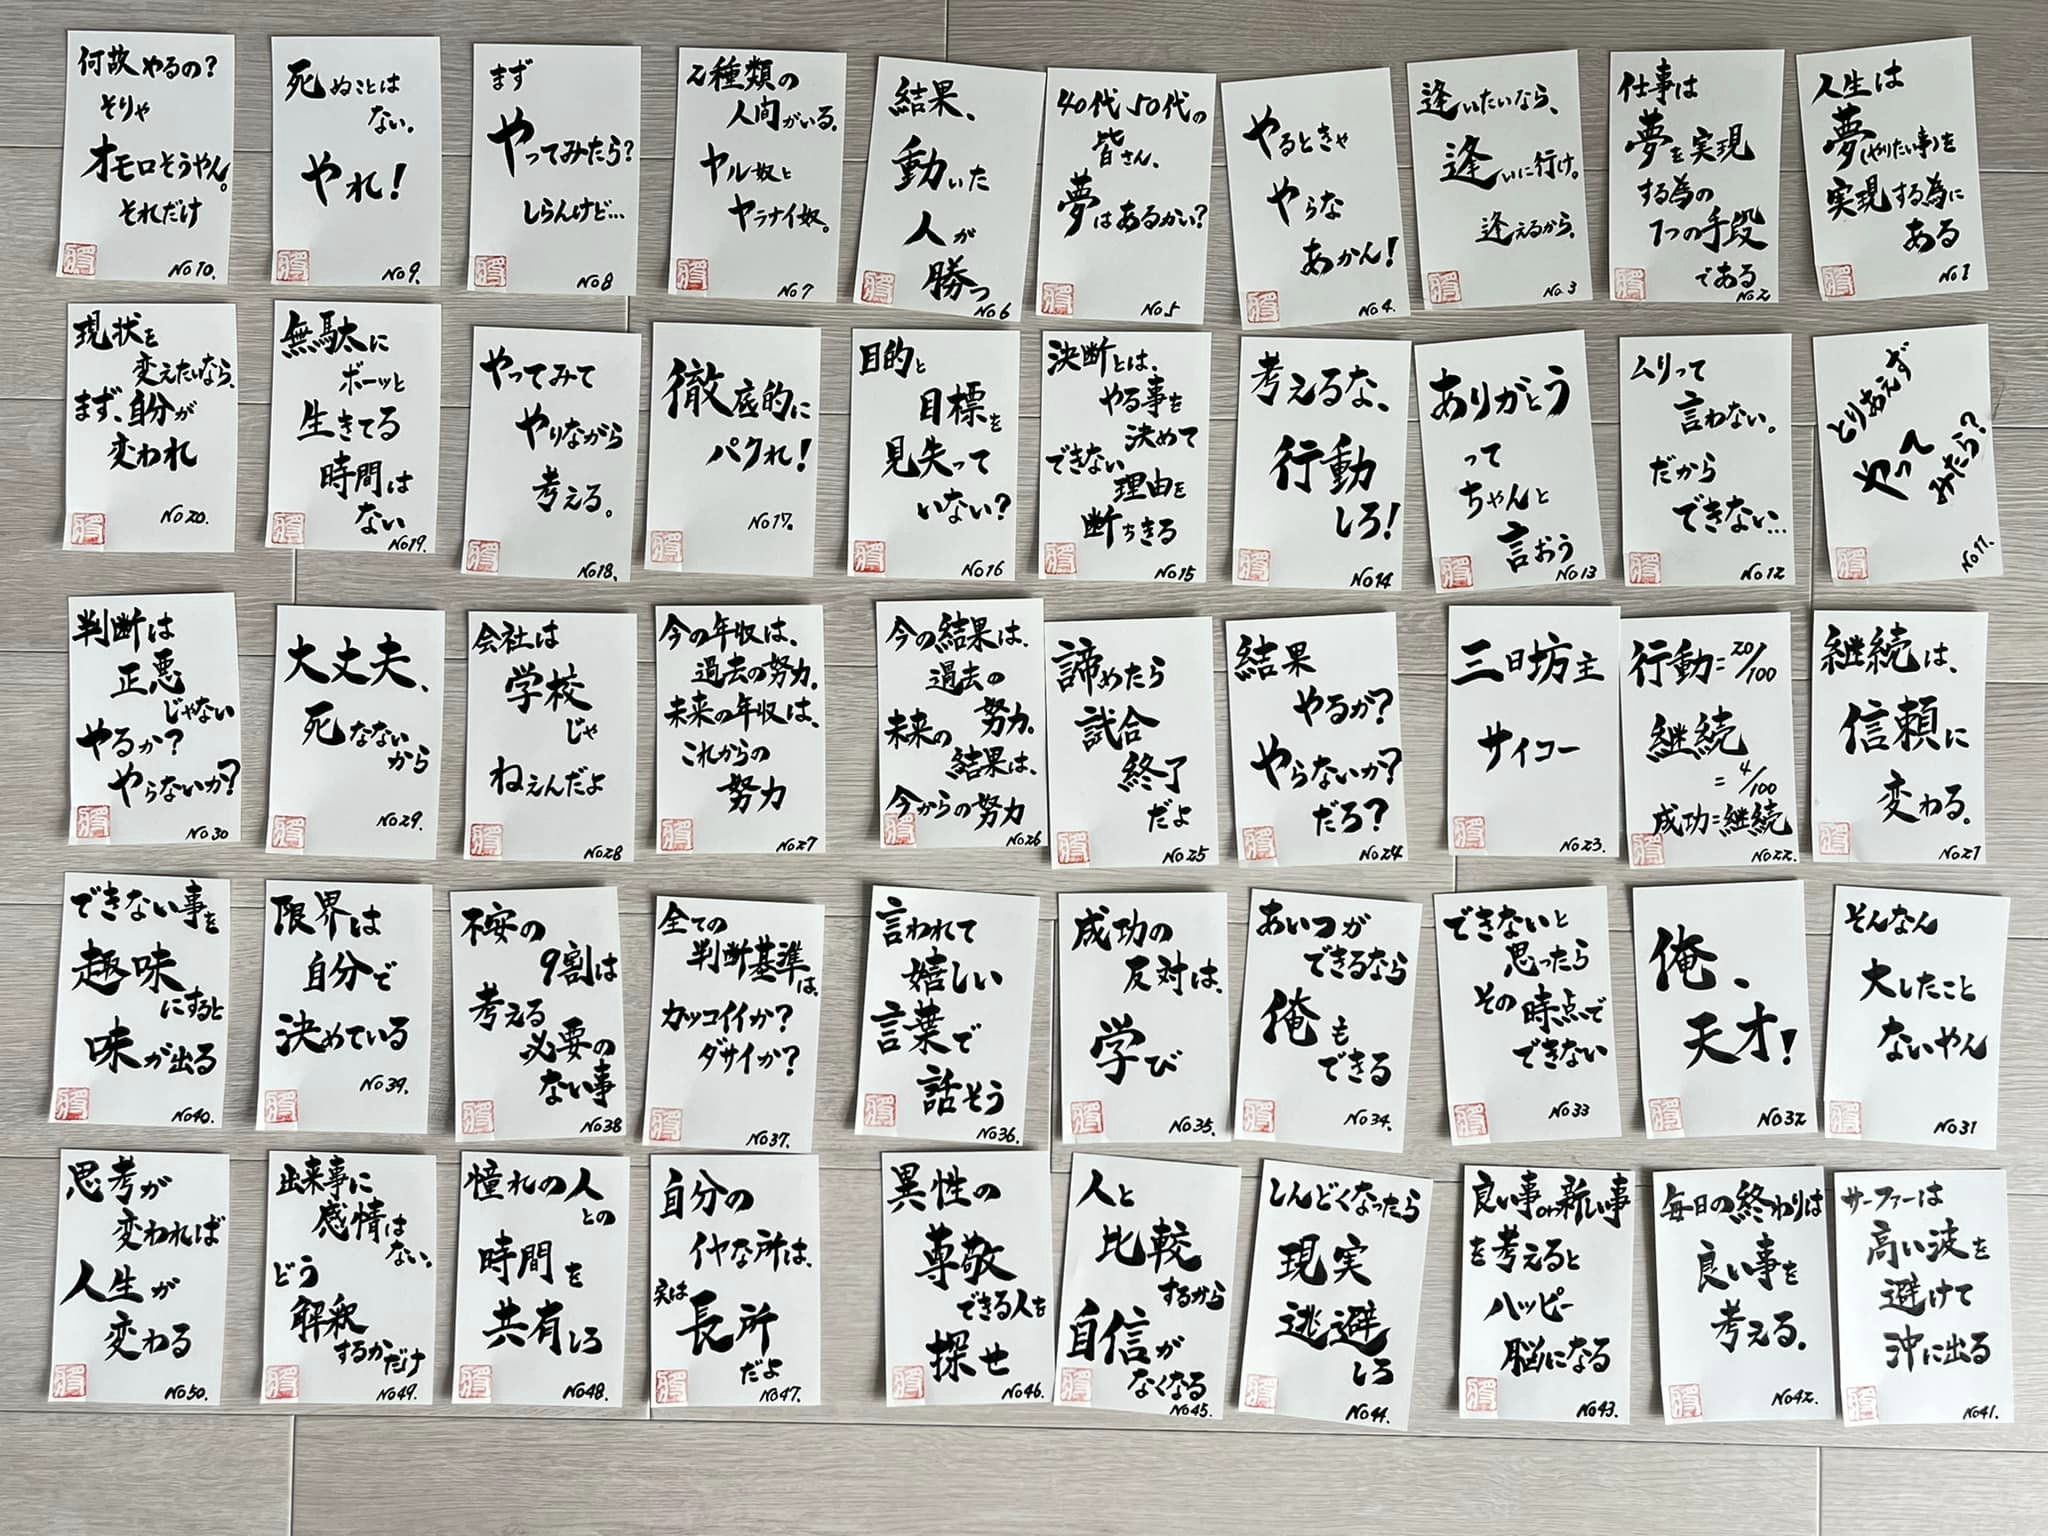 人生は
夢(やりたい事)を
実現する為に
ある
No1
仕事は
夢を実現
する為の
1つの手段
である
No2
逢いたいなら、
逢いに行け。
逢えるから。
No3
やるときゃ
やらな
あかん!
No4.
40代50代の
皆さん、
夢はあるかい?
No5
結果、
動いた
人が
勝つ
No6
2種類の
人間がいる。
ヤル奴と
ヤラナイ奴。
No7
まず
やってみたら?
しらんけど…
No8
死ぬことは
ない。
やれ!
No9.
何故やるの?
そりゃ
オモロそうやん。
それだけ
No10.
とりあえず
やって
みたら?
No11.
ムリって
言わない。
だから
できない…
No12
ありがとう
って
ちゃんと
言おう
No13
考えるな、
行動
しろ!
No14
決断とは、
やる事を
決めて
できない
理由を
断ちきる
No15
目的と
目標を
見失って
いない?
No16
徹底的に
パクれ!
No17.
やってみて
やりながら
考える。
No18.
無駄に
ボーッと
生きてる
時間は
ない
No19.
現状を
変えたいなら、
まず、自分が
変われ
No20.
継続は、
信頼に
変わる。
No21
行動=20/100
継続
=4/100
成功=継続
No22.
三日坊主
サイコー
No23.
結果
やるか?
やらないか?
だろ?
No24
諦めたら
試合
終了
だよ
No25
今の結果は、
過去の
努力。
未来の
結果は、
今からの努力
No26
今の年収は、
過去の努力。
未来の年収は、
これからの
努力
No27
会社は
学校
じゃ
ねぇんだよ
No28
大丈夫、
死なない
から
No29.
判断は
正悪
じゃない
やるか?
やらないか?
No30
そんなん
大したこと
ないやん
No31
俺、
天才!
No32
できないと
思ったら
その時点で
できない
No33
あいつが
できるなら
俺も
できる
No34.
成功の
反対は、
学び
No35.
言われて
嬉しい
言葉で
話そう
No36.
全ての
判断基準は、
カッコイイか?
ダサイか?
No37.
不安の
9割は
考える
必要の
ない事
No38
限界は
自分で
決めている
No39.
できない事を
趣味
にすると
味が出る
No40.
サーファーは
高い波を
避けて
沖に出る
No41.
毎日の終わりは
良い事を
考える。
No42.
良い事or新しい事
を考えると
ハッピー
脳になる
No43.
しんどくなったら
現実
逃避
しろ
No44.
人と
比較
するから
自信が
なくなる
No45.
異性の
尊敬
できる人を
探せ
No46.
自分の
イヤな所は、
実は
長所
だよ
No47.
憧れの人
との
時間を
共有しろ
No48.
出来事に
感情は
ない。
どう
解釈
するかだけ
No49.
思考が
変われば
人生が
変わる
No50.